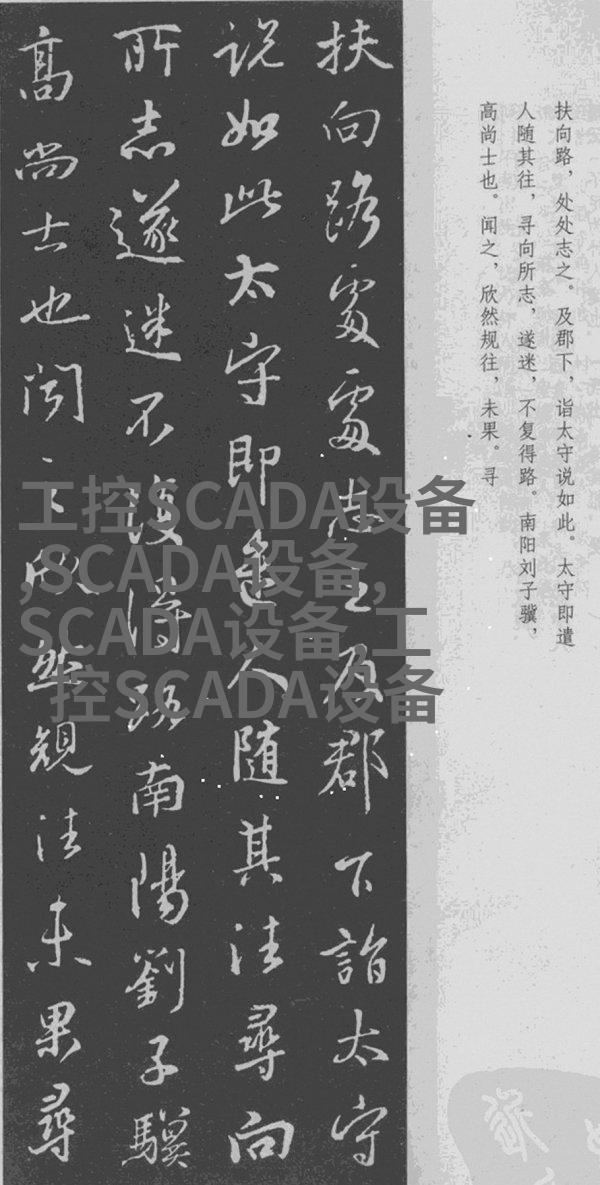 扶向路處處志之及郡下詣太守
说如此太守即遣人随其往尋向
所志遂迷不復得路南陽劉子驥
高尚士也闻之欣然規往未果尋
扶向路，处处志之。及郡下，诣太守说如此。太守即遣
人随其往，寻向所志，遂迷，不复得路。南阳刘子骥，
高尚士也。闻之，欣然规往，未果。寻
工控SCADA设备
,SCADA设备,
SCADA设备,工
控SCADA设备